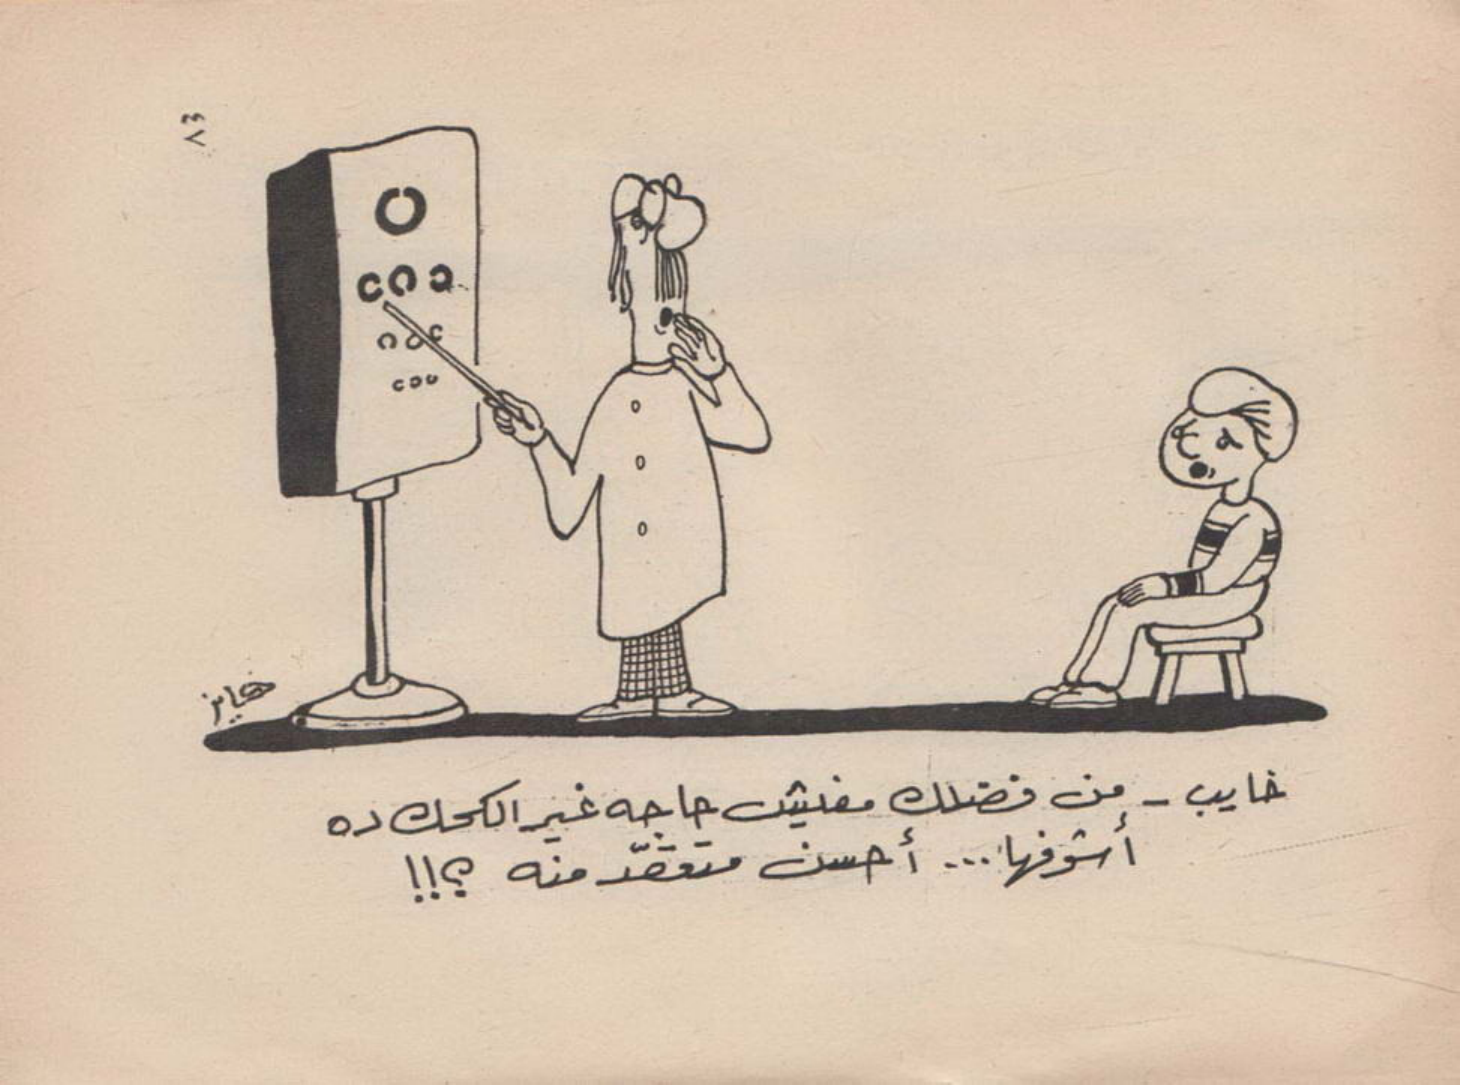 ٨٣
فايز
خايب - من فضلك مفيش حاجه غير الكحك ده
أشوفها... أحسن متعقّد منه ؟!!